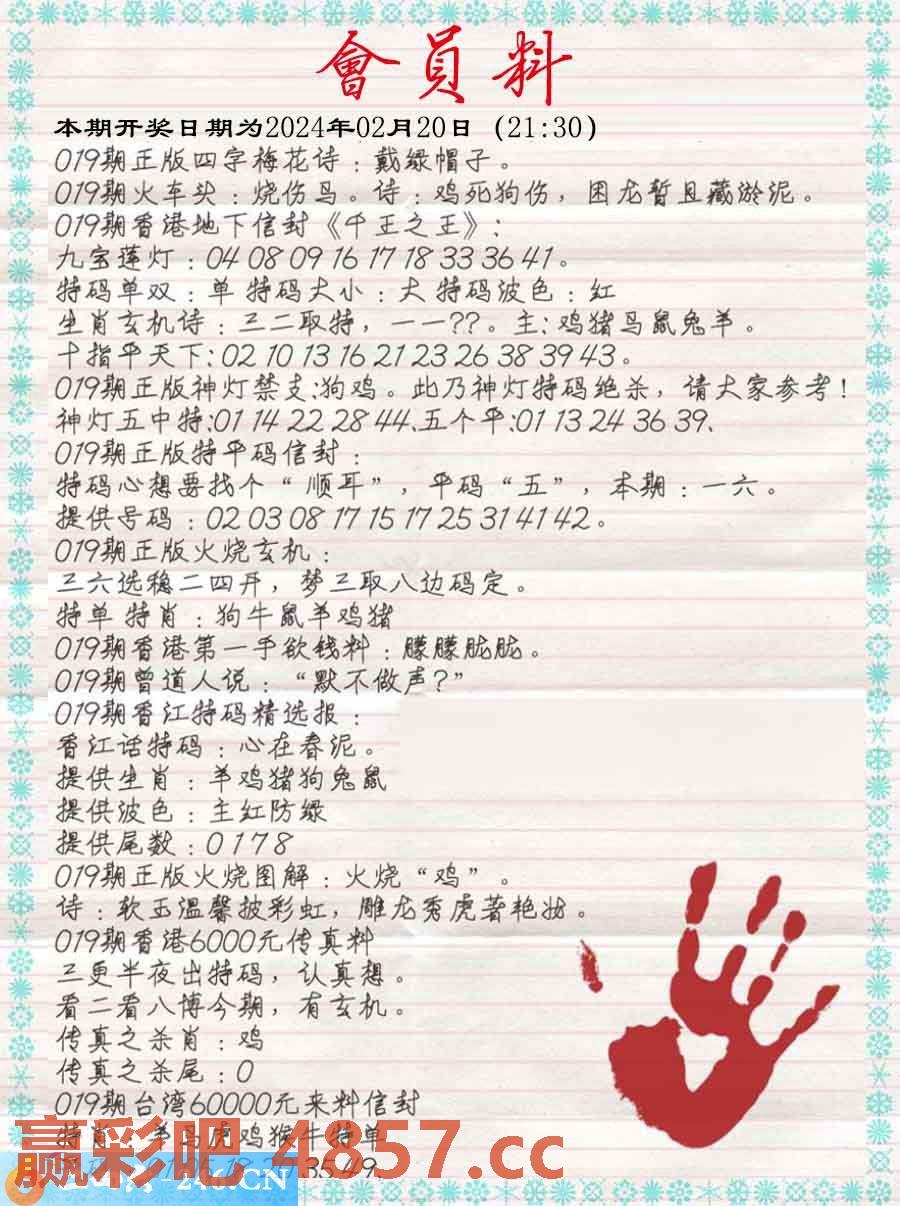 會員料
本期开奖日期为2024年02月20日（21:30）
019期正版四字梅花诗：戴绿帽子。
019期火车头：烧伤鸟。诗：鸡死狗伤，困龙暂且藏淤泥。
019期香港地下信封《千王之王》:
九宝莲灯：04 08 09 16 17 18 33 36 41。
特码单双：单 特码大小：大 特码波色：红
生肖玄机诗：三二取特，一一??。主:鸡猪鸟鼠兔羊。
十指平天下:02 10 13 16 21 23 26 38 39 43。
019期正版神灯禁支:狗鸡。此乃神灯特码绝杀，请大家参考！
神灯五中特:01 14 22 28 44.五个平:01 13 24 36 39.
019期正版特平码信封：
特码心想要找个“顺耳”，平码“五”，本期：一六。
提供号码：02 03 08 17 15 17 25 31 41 42。
019期正版火烧玄机：
三六选稳二四开，梦三取八边码定。
特单 特肖：狗牛鼠羊鸡猪
019期香港第一手欲钱料：朦朦胧胧。
019期曾道人说：“默不做声?”
019期香江特码精选报：
香江话特码：心在春泥。
提供生肖：羊鸡猪狗兔鼠
提供波色：主红防绿
提供尾数：0 1 7 8
019期正版火烧图解：火烧“鸡”。
诗：软玉温馨披彩虹，雕龙秀虎著艳妆。
019期香港6000元传真料
三更半夜出特码，认真想。
看二看八博今期，有玄机。
传真之杀肖：鸡
传真之杀尾：0
019期台湾60000元来料信封
特肖：羊马虎鸡猴牛特单
35.49.
赢彩吧 4857.cc
246.CN